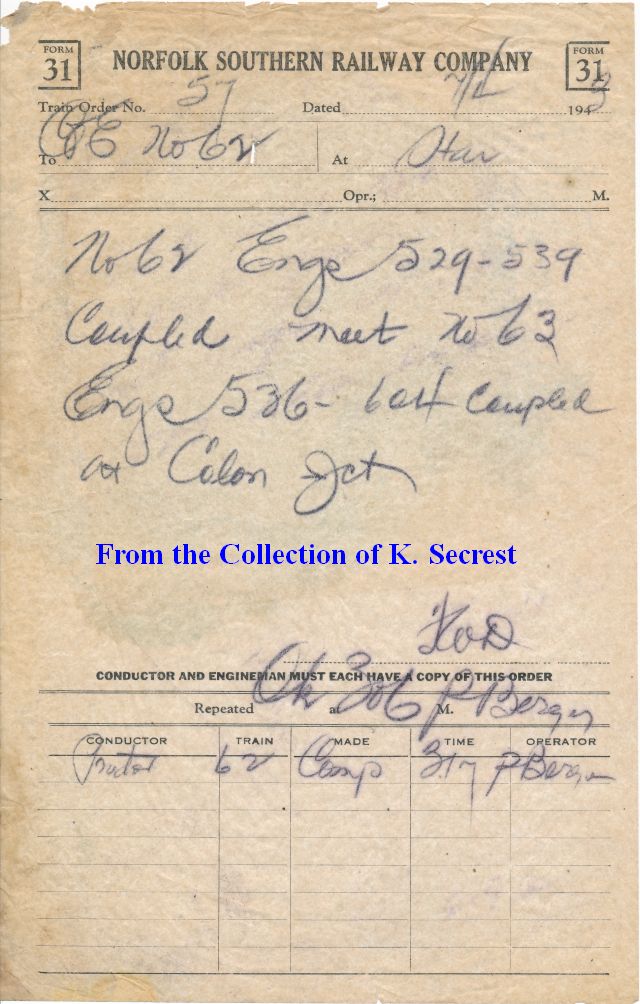 FORM 31 NORFOLK SOUTHERN RAILWAY COMPANY FORM 31
Train Order No. 57 Dated 7/2 1943
To C&E No 62 At Star
X Opr.; M.
No 62 Engs 529-539
Coupled meet No 63
Engs 536-604 Coupled
at Colon Jct
From the Collection of K. Secrest
CONDUCTOR AND ENGINEMAN MUST EACH HAVE A COPY OF THIS ORDER
Repeated Ok at 306 P M. Berger
CONDUCTOR TRAIN MADE TIME OPERATOR
62 Comp 317 P Berger